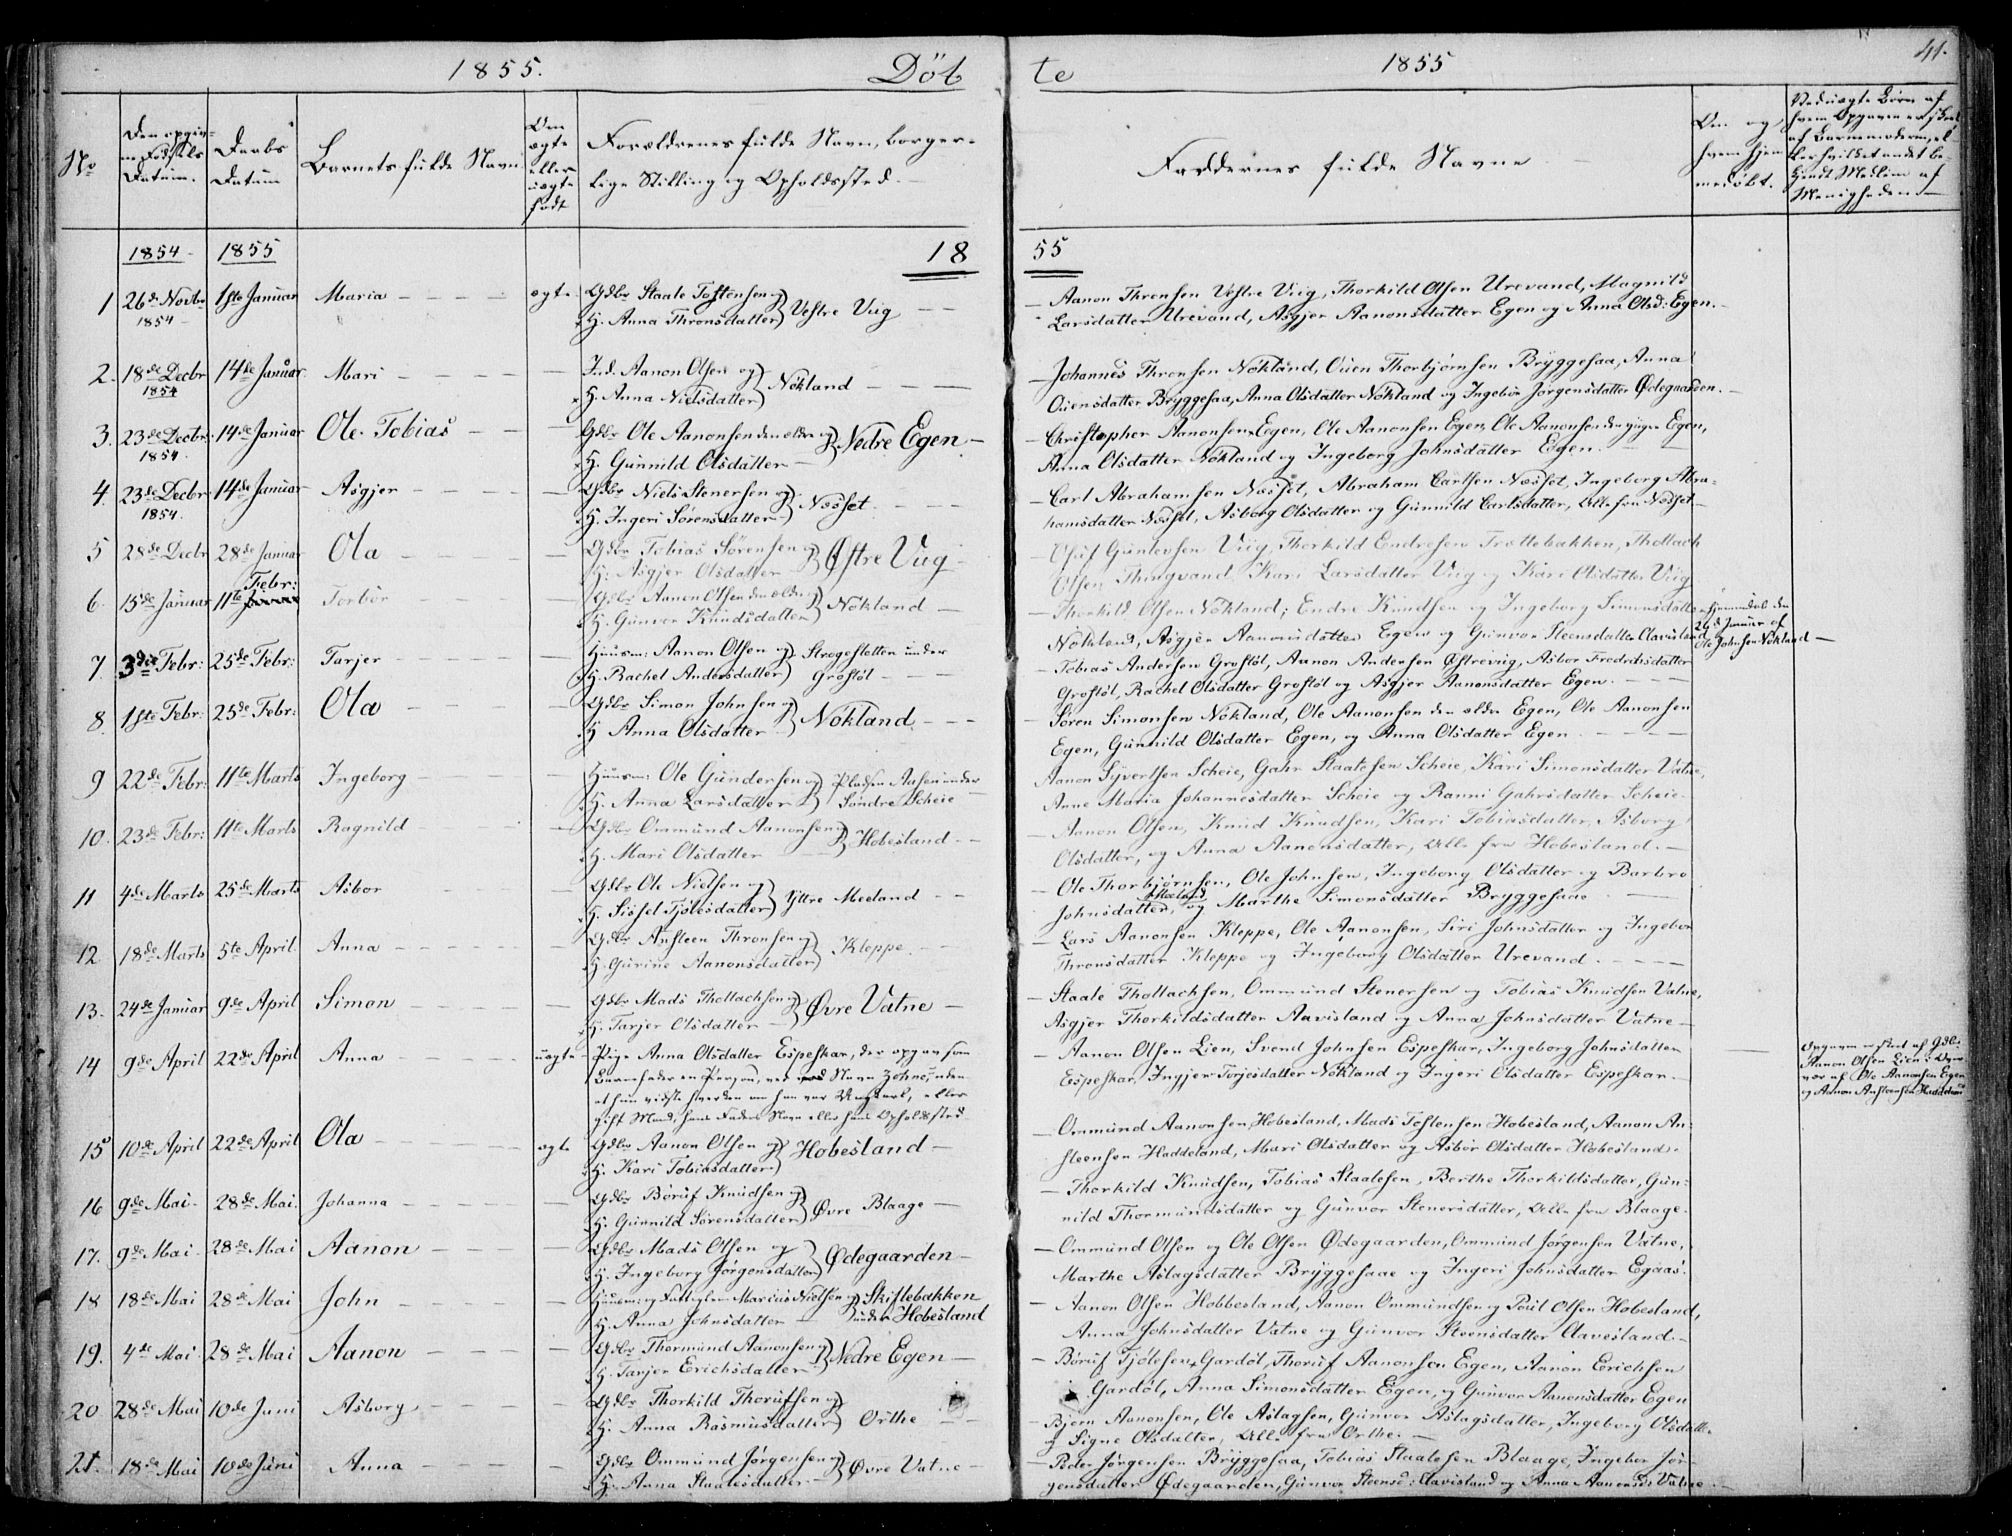 1855. Döbte 1855 41.
No
Den opgivne Fødsels Datum.
Daabs Datum
Barnets fulde Navn
Om ægte eller uægte født
Forældrenes fulde Navn, borgerlige Stilling og Opholdssted.
Faddernes fulde Navne
Om og hvem hjemmedøbt.
Ved uægte Børn af hvem Opgaven er skeet af Barnemoderen, eller hvilket andet bekjendt Medlem af Menigheden
1854 1855 1855
1 26de Novbr 1854 1ste Januar Maria ægte Gdbr Staale Tostensen og
H. Anna Thronsdatter Vestre Viig
Aanon Thronsen Vestre Viig, Thorkild Olsen Urevand, Magnild
Larsdatter Urevand, Asgjer Aanonsdatter Egen og Anna Olsd: Egen.
2. 18de Decbr 1854 14de Januar Mari Ind. Aanon Olsen og
H. Anna Nielsdatter Nökland
Johannes Thronsen Nökland, Ouen Thorbjørnsen Bryggesaa, Anna
Ouensdatter Bryggesaa, Anna Olsdatter Nökland og Ingebør Jørgensdatter Ødegaarden.
3. 23de Decbr 1854. 14de Januar Ole Tobias Gdbr Ole Aanonsen den eldre og
H. Gunnild Olsdatter Nedre Egen
Christopher Aanonsen Egen, Ole Aanonsen Egen, Ole Aanonsen den yngre Egen,
Anna Olsdatter Nökland og Ingeborg Johnsdatter Egen.
4. 23de Decbr 1854. 14de Januar Asgjer Gdbr Niels Stenersen og
H. Ingeri Sørensdatter Næsset
Carl Abrahamsen Næsset, Abraham Carlsen Næsset, Ingeborg Abra-
hamsdatter Næsset, Asborg Olsdatter og Gunnild Carlsdatter, Alle fra Næsset
5 28de Decbr 28de Januar Ola Gdbr Tobias Sörensen og
H. Asgjer Olsdatter Østre Viig
Oluf Gunlevsen Viig, Thorkild Endresen Trættebakken, Thollach
Olsen Thingvand, Kari Larsdatter Viig og Kari Olsdatter Viig
6. 15de Januar 11te Febr: Torbör Gdbr Aanon Olsen den eldre og
H. Gunvor Knudsdatter Nökland
Thorkild Olsen Nökland, Endre Knudsen og Ingeborg Simonsdatter
Nökland, Asgjer Aanonsdatter Egen og Gunvor Steensdatter Clavisland
Hjemmedøbt den 29de Januar af Ole Johnsen Nökland
7. 3die Febr: 25de Febr: Tarjer Huusm: Aanon Olsen og
H. Rachel Andersdatter Strøgesletten under Grostöl
Tobias Andersen Grostöl, Aanon Andersen Østrevig, Asbor Fredriksdatter
Grostöl, Rachel Olsdatter Grostöl og Asgjer Aanonsdatter Egen.
8. 1ste Febr: 25de Febr: Ola Gdbr Simon Johnsen og
H Anna Olsdatter Nökland
Søren Simonsen Nökland, Ole Aanonsen den eldre Egen, Ole Aanonsen
Egen, Gunnild Olsdatter Egen, og Anna Olsdatter Egen
9 22de Febr: 11te Marts Ingeborg Huusm: Ole Gundersen og
H. Anna Larsdatter Pladsen Aasen under Söndre Scheie
Aanon Syvertsen Scheie, Gahr Staalesen Scheie, Kari Simonsdatter Vatne,
Anne Maria Johannesdatter Scheie og Ranni Gahrsdatter Scheie.
10. 23de Febr: 11te Marts Ragnild Gdbr Ommund Aanonsen og
H. Mari Olsdatter Hobesland
Aanon Olsen, Knud Knudsen, Kari Tobiasdatter, Asborg
Olsdatter, og Anna Aanonsdatter, Alle fra Hobesland.
11 4de Marts 25de Marts Asbor Gdbr Ole Nielsen og
H. Sissel Tjölesdatter Yttre Meeland
Ole Thorbjørnsen, Ole Johnsen, Ingeborg Olsdatter og Barbro
Johnsdatter, Meeland og Marthe Simonsdatter Bryggesaae
12 18de Marts 5te April Anna Gdbr Ansteen Thronsen og
H. Gurine Aanonsdatter Kleppe
Lars Aanonsen Kleppe, Ole Aanonsen, Siri Johnsdatter og Ingebor
Thronsdatter Kleppe og Ingeborg Olsdatter Urevand.
13. 24de Januar 9de April Simon Gdbr Mads Thollachsen og
H. Tarjer Olsdatter Øvre Vatne
Staale Thollachsen, Ommund Stenersen og Tobias Knudsen Vatne,
Asgjer Thorkildsdatter Aavisland og Anna Johnsdatter Vatne
14 9de April 22de April Anna uægte Pige Anna Olsdatter Espeskar, der opgav som
Barnefader en Person, ved Navn Johns, uden
at hun vidste hverken om han var Ungkarl, eller
gift Mand, hans Faders Navn eller hans Opholdssted
Aanon Olsen Lien, Svend Johnsen Espeskar, Ingeborg Johnsdatter
Espeskar, Ingjer Torjesdatter Nökland og Ingeri Olsdatter Espeskar
Opgaven er skeet af Gdbr. Aanon Olsen Lien i Nærvær af Ole Aanonsen Egen og Aanon Anstensen Haddeland
15 10de April 22de April Ola ægte Gdbr Aanon Olsen og
H. Kari Tobiasdatter Hobesland
Ommund Aanonsen Hobesland, Mads Tostensen Hobesland, Aanon An-
steensen Haddeland, Mari Olsdatter og Asbör Olsdatter Hobesland.
16 9de Mai 28de Mai. Johanna Gdbr Böruf Knudsen og
H. Gunnild Sørensdatter Øvre Blaage
Thorkild Knudsen, Tobias Staalesen, Berthe Thorkildsdatter, Gun-
nild Thormundsdatter og Gunvor Stenersdatter, Alle fra Blaage.
17. 9de Mai 28de Mai Aanon Gdbr Mads Olsen og
H. Ingeborg Jørgensdatter Ødegaarden
Ommund Olsen og Ole Olsen Ødegaarden, Ommund Jørgensen Vatne,
Marthe Aslagsdatter Bryggesaae og Ingeri Johnsdatter Egaas.
18 18de Mai 28de Mai John Huusm: og Fattiglem Marcus Nielsen og
H. Anna Johnsdatter Skiftebakken under Hobesland
Aanon Olsen Hobbesland, Aanon Ommundsen og Poul Olsen Hobesland,
Anna Johnsdatter Vatne og Gunvor Steensdatter Clavesland.
19. 4de Mai 28de Mai Aanon Gdbr Thormund Aanonsen og
H. Tarjer Erichsdatter Nedre Egen
Böruf Tjölesen Gardöl, Thoruf Aanonsen Egen, Aanon Erichsen
Gardöl, Anna Simonsdatter Egen, og Gunvor Aanonsdatter Egen
20 28de Mai 10de Juni Asborg Gdbr Thorkild Thorufsen og
H. Anna Rasmusdatter Orthe
Bjorn Aanonsen, Ole Aslagsen, Gunvor Aslagsdatter, Ingeborg Olsdatter
og Signe Olsdatter, Alle fra Orthe.
21. 18de Mai 10de Juni Anna Gdbr Ommund Jørgensen og
H. Anna Staalesdatter Øvre Vatne
Peder Jørgensen Bryggesaa, Tobias Staalesen Blaage, Ingebor Jör-
gensdatter Ødegaarden, Gunvor Steensd: Clavisland og Anna Aanonsd: Vatne